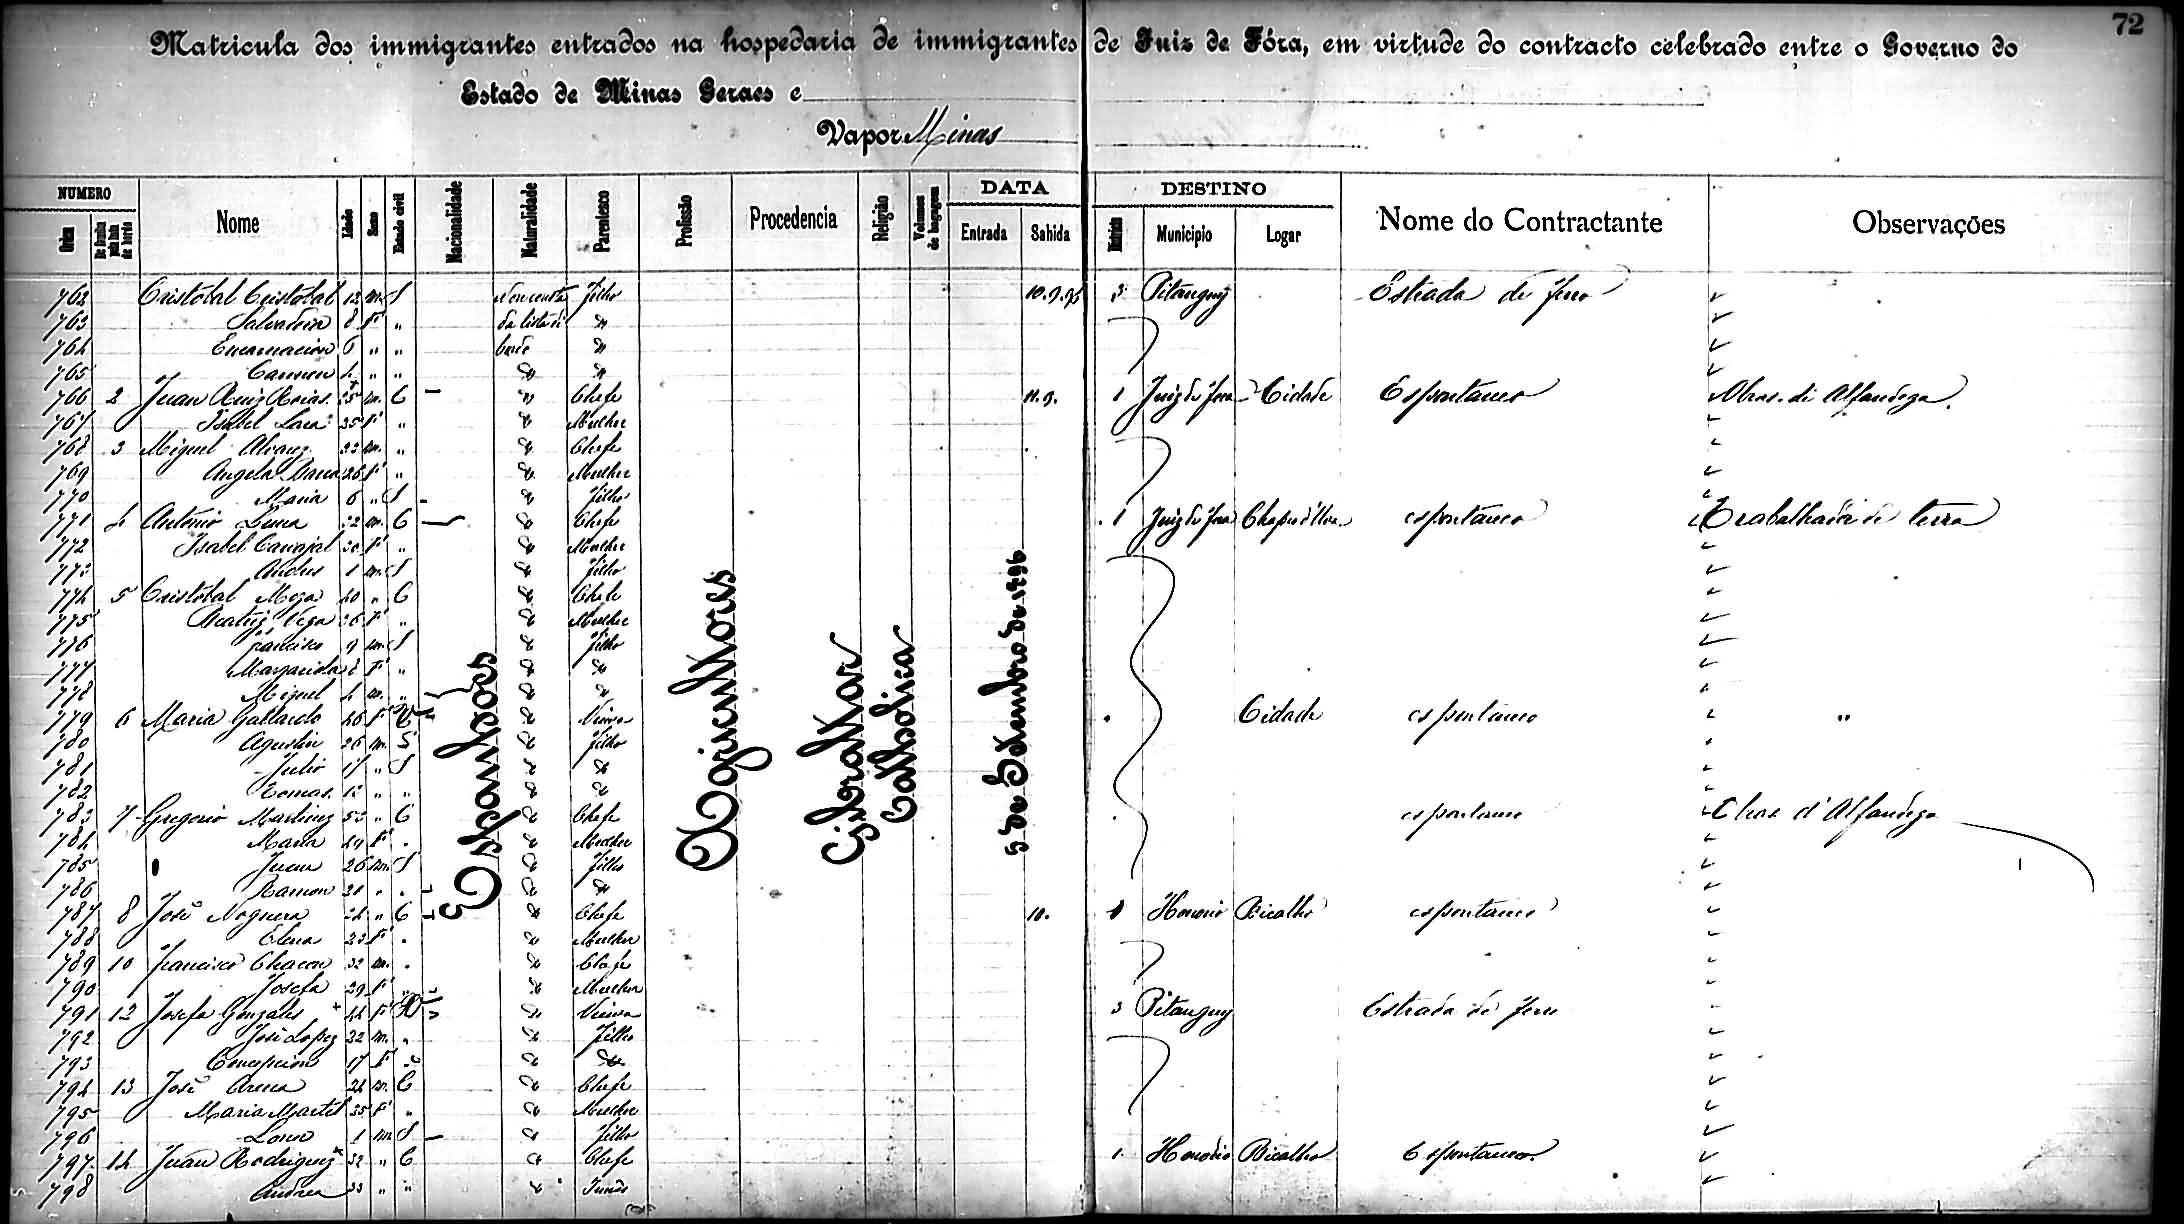 72
Matricula dos immigrantes entrados na hospedaria de immigrantes de Juiz de Fóra, em virtude do contracto celebrado entre o Governo do
Estado de Minas Geraes e
Vapor Minas
NUMERO Nome Idade Sexo Estado civil Nacionalidade Naturalidade Parentesco Profissão Procedencia Religião Volumes de bagagem DATA Entrada Sahida DESTINO Districto Municipio Logar Nome do Contractante Observações
Ordem
762 Cristobal Cristobal 12 m. S Non consta Filho 10.9.96 3 Pitanguy Estrada de ferro
763 Salvadora 8 F " da lista di "
764 Encarnacion 6 " " bordo "
765 Carmen 4 " " " "
766 2 Juan Ruiz 35 m. C " Chefe 11.9. 1 Juiz de fora Cidade Espontaneo Obras di Alfandega
767 Isabel Lara 35 F " " Mulher
768 3 Miguel Alvarez 33 m. " " Chefe
769 Angela 26 F " " Mulher
770 Maria 6 " S " Filho
771 4 Antonio Luna 32 m. C " Chefe 1 Juiz de fora espontaneo Trabalhador di terra
772 Isabel Carvajal 30 F " " Mulher
773 Andres 1 m. S " Filho
774 5 Cristobal 40 " C " Chefe
775 Beatriz Vega 36 F " " Mulher
776 Francisco 9 m. S " Filho
777 Margarida 8 F " " "
778 Miguel 4 m. " " "
779 6 Maria Gallardo 46 F V " Viuva Cidade espontaneo "
780 Agustin 26 m. S " Filho
781 Julio 17 " S " "
782 Tomas 12 " " " "
783 7 Gregorio Martinez 53 " C " Chefe espontaneo Obras d'Alfandega
784 Maria 49 F . " Mulher
785 Juan 26 m. S " Filho
786 Ramon 20 " . " "
787 8 José Noguera 24 " C " Chefe 10. 1 Honorio Bicalho espontaneo
788 Elena 23 F . " Mulher
789 10 Francisco Chacon 32 m. . " Chefe
790 Josefa 29 F " " Mulher
791 12 Josefa Gonzales 44 F V " Viuva 3 Pitanguy Estrada di ferro
792 José Lopez 22 m. " " Filho
793 Concepcion 17 F " " "
794 13 José Arena 24 m. C " Chefe
795 Maria Martel 35 F " " Mulher
796 1 m S " Filho
797 14 Juan Rodriguez 32 " C " Chefe 1. Honorio Bicalho Espontaneo.
798 Andrea 33 " " "
Espanhóes
Agricultores
Gibraltar
Catholica
5 de Setembro de 1896